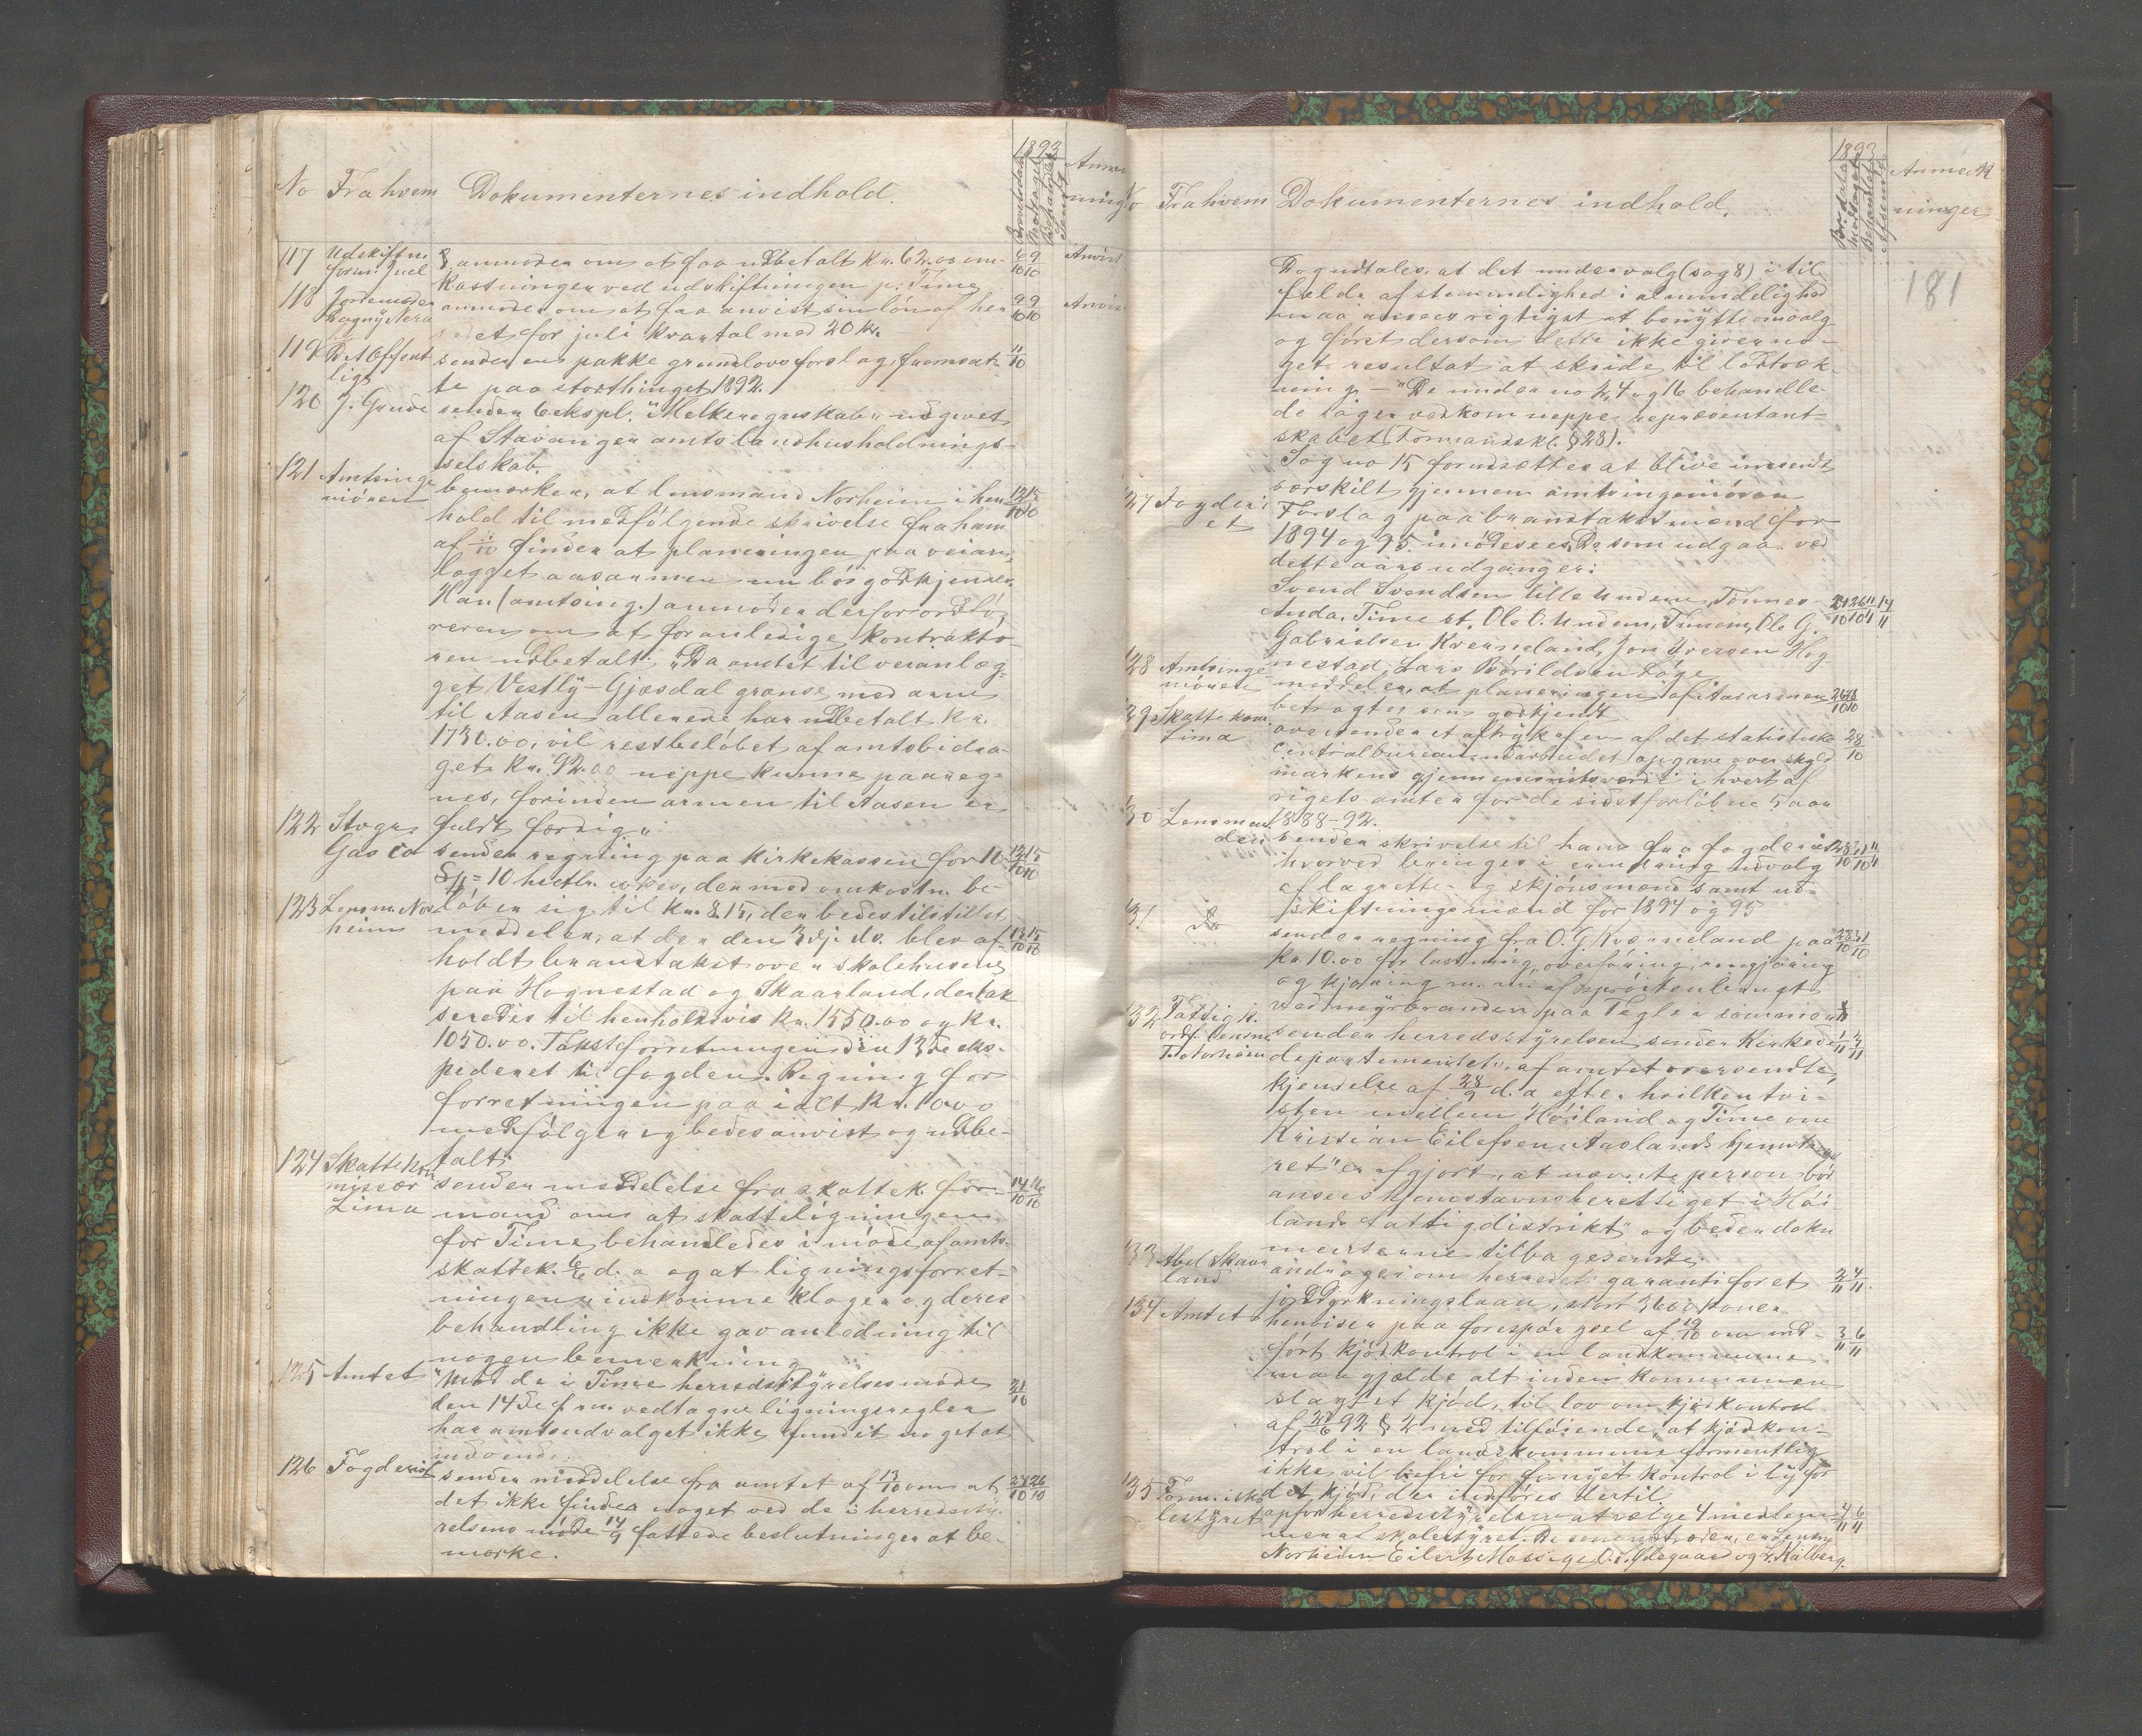 No Fra hvem Dokumenternes indhold. 1893 Brevets dato Modtaget Behandlet Anmær
ning
117 Udskiftn. anmoder om at faa udbetalt Kr. 62.00 om- 6/10 9/10 Anvist
form. Juel kostninger ved udskiftningen p. Time
118 Jordemoder anmoder om at faa anvist sin løn af her 9/10 9/10 Anvist
redet for juli kvartal med 20 kr.
119 Det Offent sender en pakke grundlovsforslag, fremsat- 11/10
lige te paa storthinget 1892.
120 J. Grude sender 6 ekspl. "Melkeregnskab" udgivet
af Stavanger amts landhusholdnings-
selskab.
121 Amtsinge bemærker, at lensmand Norheim i hen
niøren hold til medfølgende skrivelse fra ham
af finder at planeringen paa veian-
lægget aasarmen nu bør godkjendes.
Han (amtsing.) anmoder derfor ordfø-
reren om at foranledige kontraktø-
ren udbetalt. "Da amtet til veianlæg-
get Vestly-Gjesdal grænse med arm
til Aasen allerede har udbetalt Kr.
1730.00, vil restbeløbet af amtsbidra-
get Kr. 92.00 neppe kunne paareg-
nes, forinden armen til Aasen er
fuldt færdig"
122 Stvgr. sender regning paa kirkekassen for 10
Gas co = 10 hectl. cokes, der med omkostn. be-
løber sig til Kr. 8.15, der bedes tilstillet
123 Lensm. Nor meddeler, at der den 3dje ds. blev af-
heim holdt brandtakst over skolehusene
paa Hognestad og Skaarland, der tak
seredes til henholdsvis Kr. 1550.00 og Kr.
1050.00. Takstforretningen den 13de eks-
pederet til fogden. Regning for
forretningen paa ialt Kr. 10.00
medfølger og bedes anvist og udbe-
talt.
124 Skattekom sender meddelelse fra skattek. for-
missær mand om at skatteligningen
Lima for Time behandledes i møde af amts-
skattek. d. a og at ligningsforret-
ningen, indkomne klager og deres
behandling ikke gav anledning til
nogen bemerkning
125 Amtet "Mod de i Time herredsstyrelses møde 21/10
den 14de f.m. vedtagne ligningsregler
har amtsudvalget ikke fundet noget at
indvende.
126 Fogderiet sender meddelelse fra amtet af om at 24/10 26/10
det ikke finder noget ved de i herredssty
relsens møde 14/9 fattede beslutninger at be-
mærke.
No Fra hvem Dokumenternes indhold. 1893 Br. dato modtaget Behandlet Afsendt Anmærk
ninger
181
Dog udtales, at det under valg (sag 8) i til
fælde af stemmelighed i almindelighed
maa ansees rigtigst at benytte omvalg
og først dersom dette ikke giver no-
get resultat at skride til lodtræk-
ning. – "De under no 2, 4 og 16 behandle-
de sager vedkom neppe repræsentant-
skabet (Formandskl. § 28).
Sag no 15 forudsættes at blive innsendt
særskilt gjennem amtsingeniøren
127 Fogderi Forslag paa brandtakstmænd for
et 1894 og 95 imødesees. De som udgaa ved
dette aars udgang er:
Svend Svendsen lille Undem, Tønnes
Anda, Time st. Ole O. Undem, Tunem, Ole G.
Gabrielsen Kverneland, Jon Iversen Hog-
nestad, Lars Bårildsen Låge
128 Amtsinge- meddeler, at planeringen af Aasarmen 26/10 28/10
niøren betragtes som godkjendt
129 Skattekom. oversender et aftryk af en af det statistiske 28/10
Lima Centralbureau udarbeidet opgave over skyld
markens gjennemsnitsværdi i hvert af
rigets amter for de sidst forløbne 5 aar
1888-92.
130 Lensman sender skrivelse til ham fra fogderiet
den hvorved bringes i erindring udvalg
af lagrette- og skjønsmænd samt ud-
skiftningsmænd for 1894 og 95
131 Do sender regning fra O. G. Kverneland paa
Kr. 10.00 for lastning, overføring, rengjøring
og kjøring m. m. af sprøiten brugt
ved myrbranden paa Tegle i sommer
132 Fattigk. sender herredsstyrelsen sender Kirkede-
ordf. Lensm. departementets, af amtet oversendte,
T. Norheim kjendelse af 28/9 d. a efter hvilken tvi-
sten mellem Høiland og Time om
Kristian Eilefsen Aaslands hjemstavns
ret "er afgjort, at nævnte person bør
ansees hjemstavnsberettiget i Høi-
lands fattigdistrikt" og beder doku
menterne tilbagesendte.
133 Abel Skaar andrager om herredets garanti for et 2/11 4/11
land jorddyrkningslaan, stort 3600 kroner
134 Amtet henviser paa forespørgsel af 19/10 om ind- 3/11 6/11
ført kjødkontrol i en landkommune
maa gjælde alt inden kommunen
slagtet kjød, til lov om kjødkontrol
af 27/6 92 § 2 med tilføiende, at kjødkon-
trol i en landskommune formentlig
ikke vil befri for fornyet kontrol i by for
det kjød, der indføres dertil
135 Form. i sko opfor herredsstyrelsen at vælge 4 medlem- 4/11 6/11
lestyret mer af skolestyret. De som udtræder, er Lensm
Norheim Eilert Mossige, O. S. Ødegaard og Kalberg.